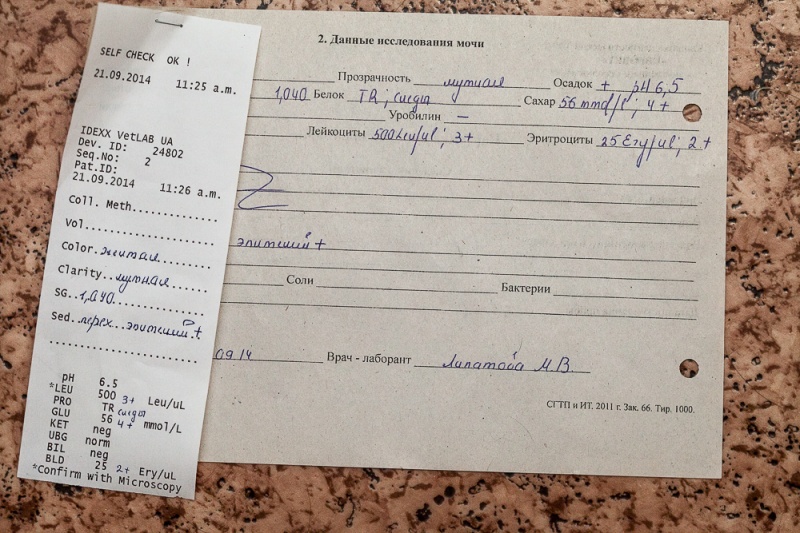 SELF CHECK OK !
21.09.2014 11:25 a.m.
IDEXX VetLAB UA
Dev. ID: 24802
Seq.No: 2
Pat.ID:
21.09.2014 11:26 a.m.
Coll. Meth.............
Vol.................
Color..желтая........
Clarity..мутная......
SG..1,040............
Sed..перех..эпителий.+
..................
pH 6.5
*LEU 500 3+ Leu/uL
PRO TR следы
GLU 56 4+ mmol/L
KET neg
UBG norm
BIL neg
BLD 25 2+ Ery/uL
*Confirm with Microscopy
2. Данные исследования мочи
Прозрачность мутная Осадок + pH 6,5
1,040 Белок TR; следы Сахар 56 mmol/l; 4+
Уробилин —
Лейкоциты 500 Leu/ul; 3+ Эритроциты 25 Ery/ul; 2+
эпителий +
Соли Бактерии
09 14 Врач - лаборант Липатова М.В.
СГТП и ИТ. 2011 г. Зак. 66. Тир. 1000.